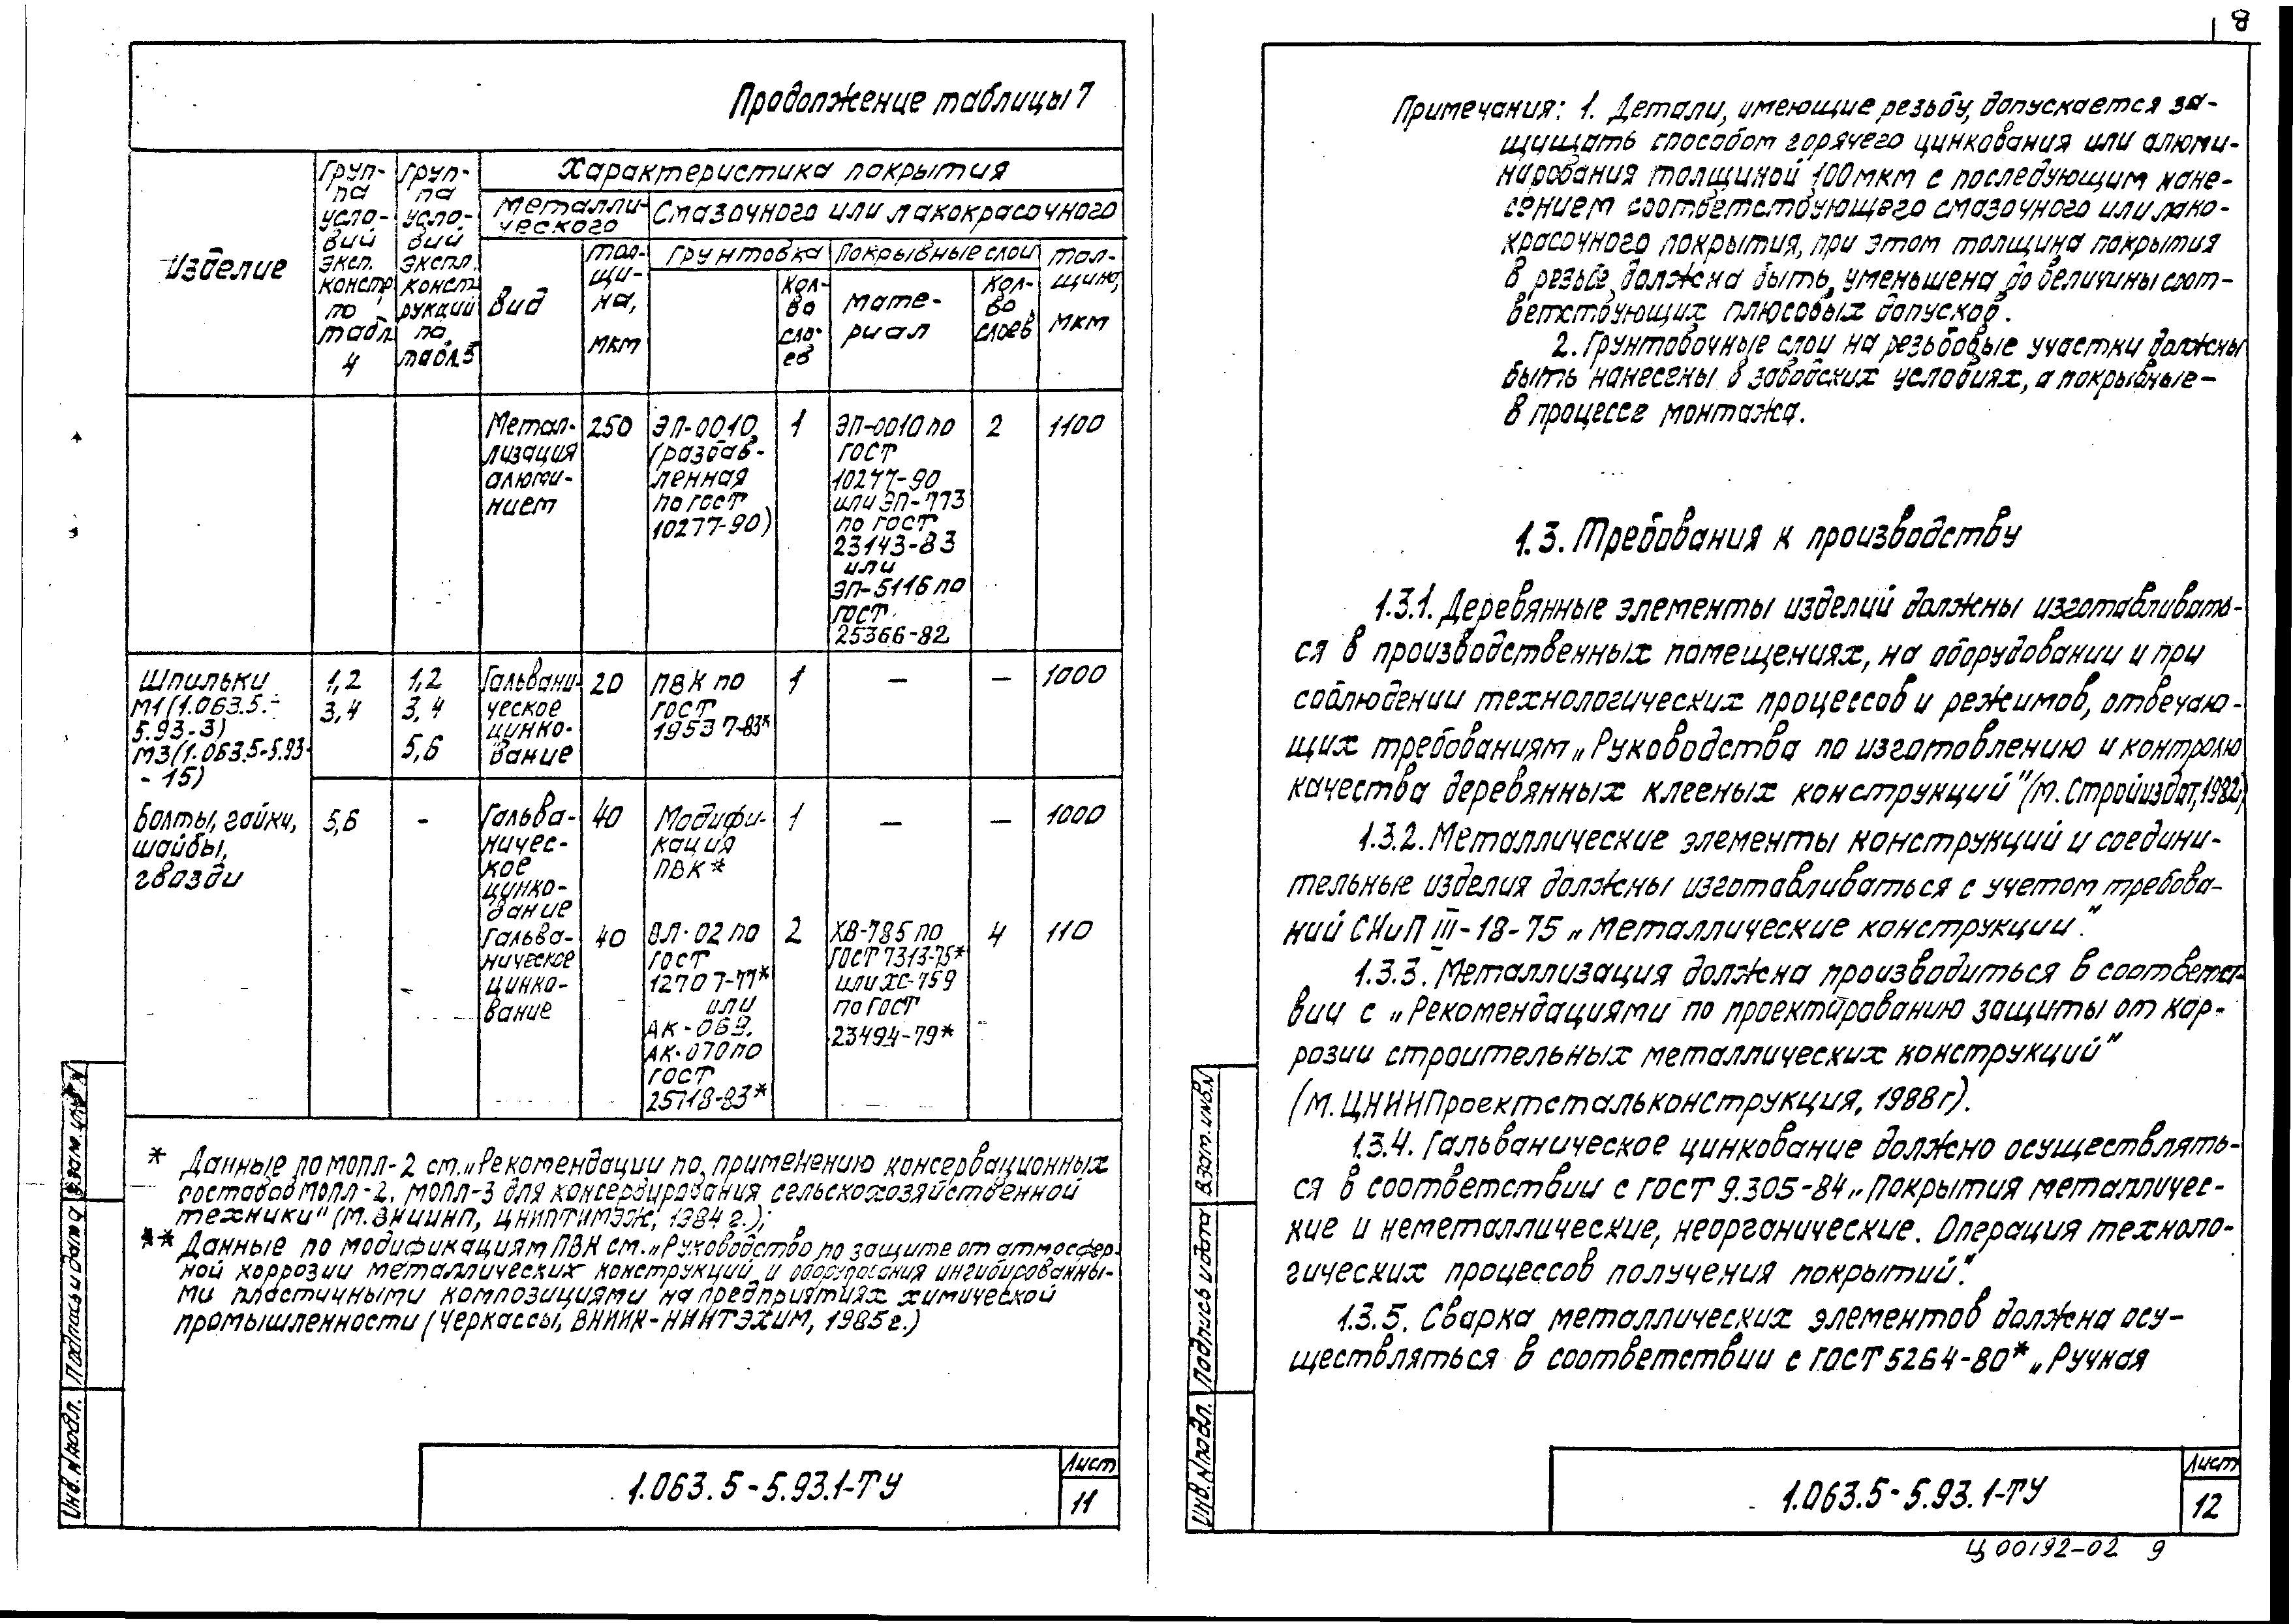 8
Продолжение таблицы 7
Изделие
Груп-
па
усло-
вий
эксп.
констр.
по
табл.
4
Груп-
па
усло-
вий
экспл.
конст-
рукций
по
табл.5
Характеристика покрытия
Металли-
ческого
Смазочного или лакокрасочного
Вид
тол-
щи-
на,
мкм
Грунтовка
Кол-
во
сло-
ев
Покрывные слои
мате-
риал
Кол-
во
слоев
тол-
щина,
мкм
Метал-
лизация
алюми-
нием
250
ЭП-0010
(разбав-
ленная
по ГОСТ
10277-90)
1
ЭП-0010 по
ГОСТ
10277-90
или ЭП-773
по ГОСТ
23143-83
или
ЭП-5116 по
ГОСТ
25366-82
2
1100
Шпильки
М1(1.063.5.-
5.93-3)
М3(1.063.5-5.93-
- 15)
1,2
3,4
1,2
3,4
5,6
Гальвани-
ческое
цинко-
вание
20
ПВК по
ГОСТ
19537-83*
1
—
—
1000
Болты, гайки,
шайбы,
гвозди
5,6
-
Гальва-
ничес-
кое
цинко-
вание
40
Модифи-
кация
ПВК*
1
—
—
1000
Гальва-
ническое
цинко-
вание
40
ВЛ-02 по
ГОСТ
12707-77*
или
АК-069,
АК-070 по
ГОСТ
25718-83*
2
ХВ-785 по
ГОСТ 7313-75*
или ХС-759
по ГОСТ
23494-79*
4
110
* Данные по мопл-2 см. „Рекомендации по применению консервационных
составов мопл-2, мопл-3 для консервирования сельскохозяйственной
техники" (М. ВНИИНП, ЦНИПТИМЭЖ, 1984 г.);
** Данные по модификациям ПВК см. „Руководство по защите от атмосфер-
ной коррозии металлических конструкций и оборудования ингибированны-
ми пластичными композициями на предприятиях химической
промышленности (Черкассы, ВНИИК-НИИТЭХИМ, 1985 г.)
Инв. N подл.
Подпись и дата
Взам. инв. N
1.063.5-5.93.1-ТУ
Лист
11
Примечания: 1. Детали, имеющие резьбу, допускается за-
щищать способом горячего цинкования или алюми-
нирования толщиной 100 мкм с последующим нане-
сением соответствующего смазочного или лако-
красочного покрытия, при этом толщина покрытия
в резьбе должна быть уменьшена до величины соот-
ветствующих плюсовых допусков.
2. Грунтовочные слои на резьбовые участки должны
быть нанесены в заводских условиях, а покрывные –
в процессе монтажа.
1.3. Требования к производству
1.3.1. Деревянные элементы изделий должны изготавливать-
ся в производственных помещениях, на оборудовании и при
соблюдении технологических процессов и режимов, отвечаю-
щих требованиям „Руководства по изготовлению и контролю
качества деревянных клееных конструкций" (М. Стройиздат, 1982)
1.3.2. Металлические элементы конструкций и соедини-
тельные изделия должны изготавливаться с учетом требова-
ний СНиП III-18-75 „Металлические конструкции".
1.3.3. Металлизация должна производиться в соответст-
вии с „Рекомендациями по проектированию защиты от кор-
розии строительных металлических конструкций"
(М. ЦНИИПроектстальконструкция, 1988 г).
1.3.4. Гальваническое цинкование должно осуществлять-
ся в соответствии с ГОСТ 9.305-84 „Покрытия металличес-
кие и неметаллические, неорганические. Операция техноло-
гических процессов получения покрытий".
1.3.5. Сварка металлических элементов должна осу-
ществляться в соответствии с ГОСТ 5264-80* „Ручная
Инв. N подл.
Подпись и дата
Взам. инв. N
1.063.5-5.93.1-ТУ
Лист
12
Ц 00192-02 9